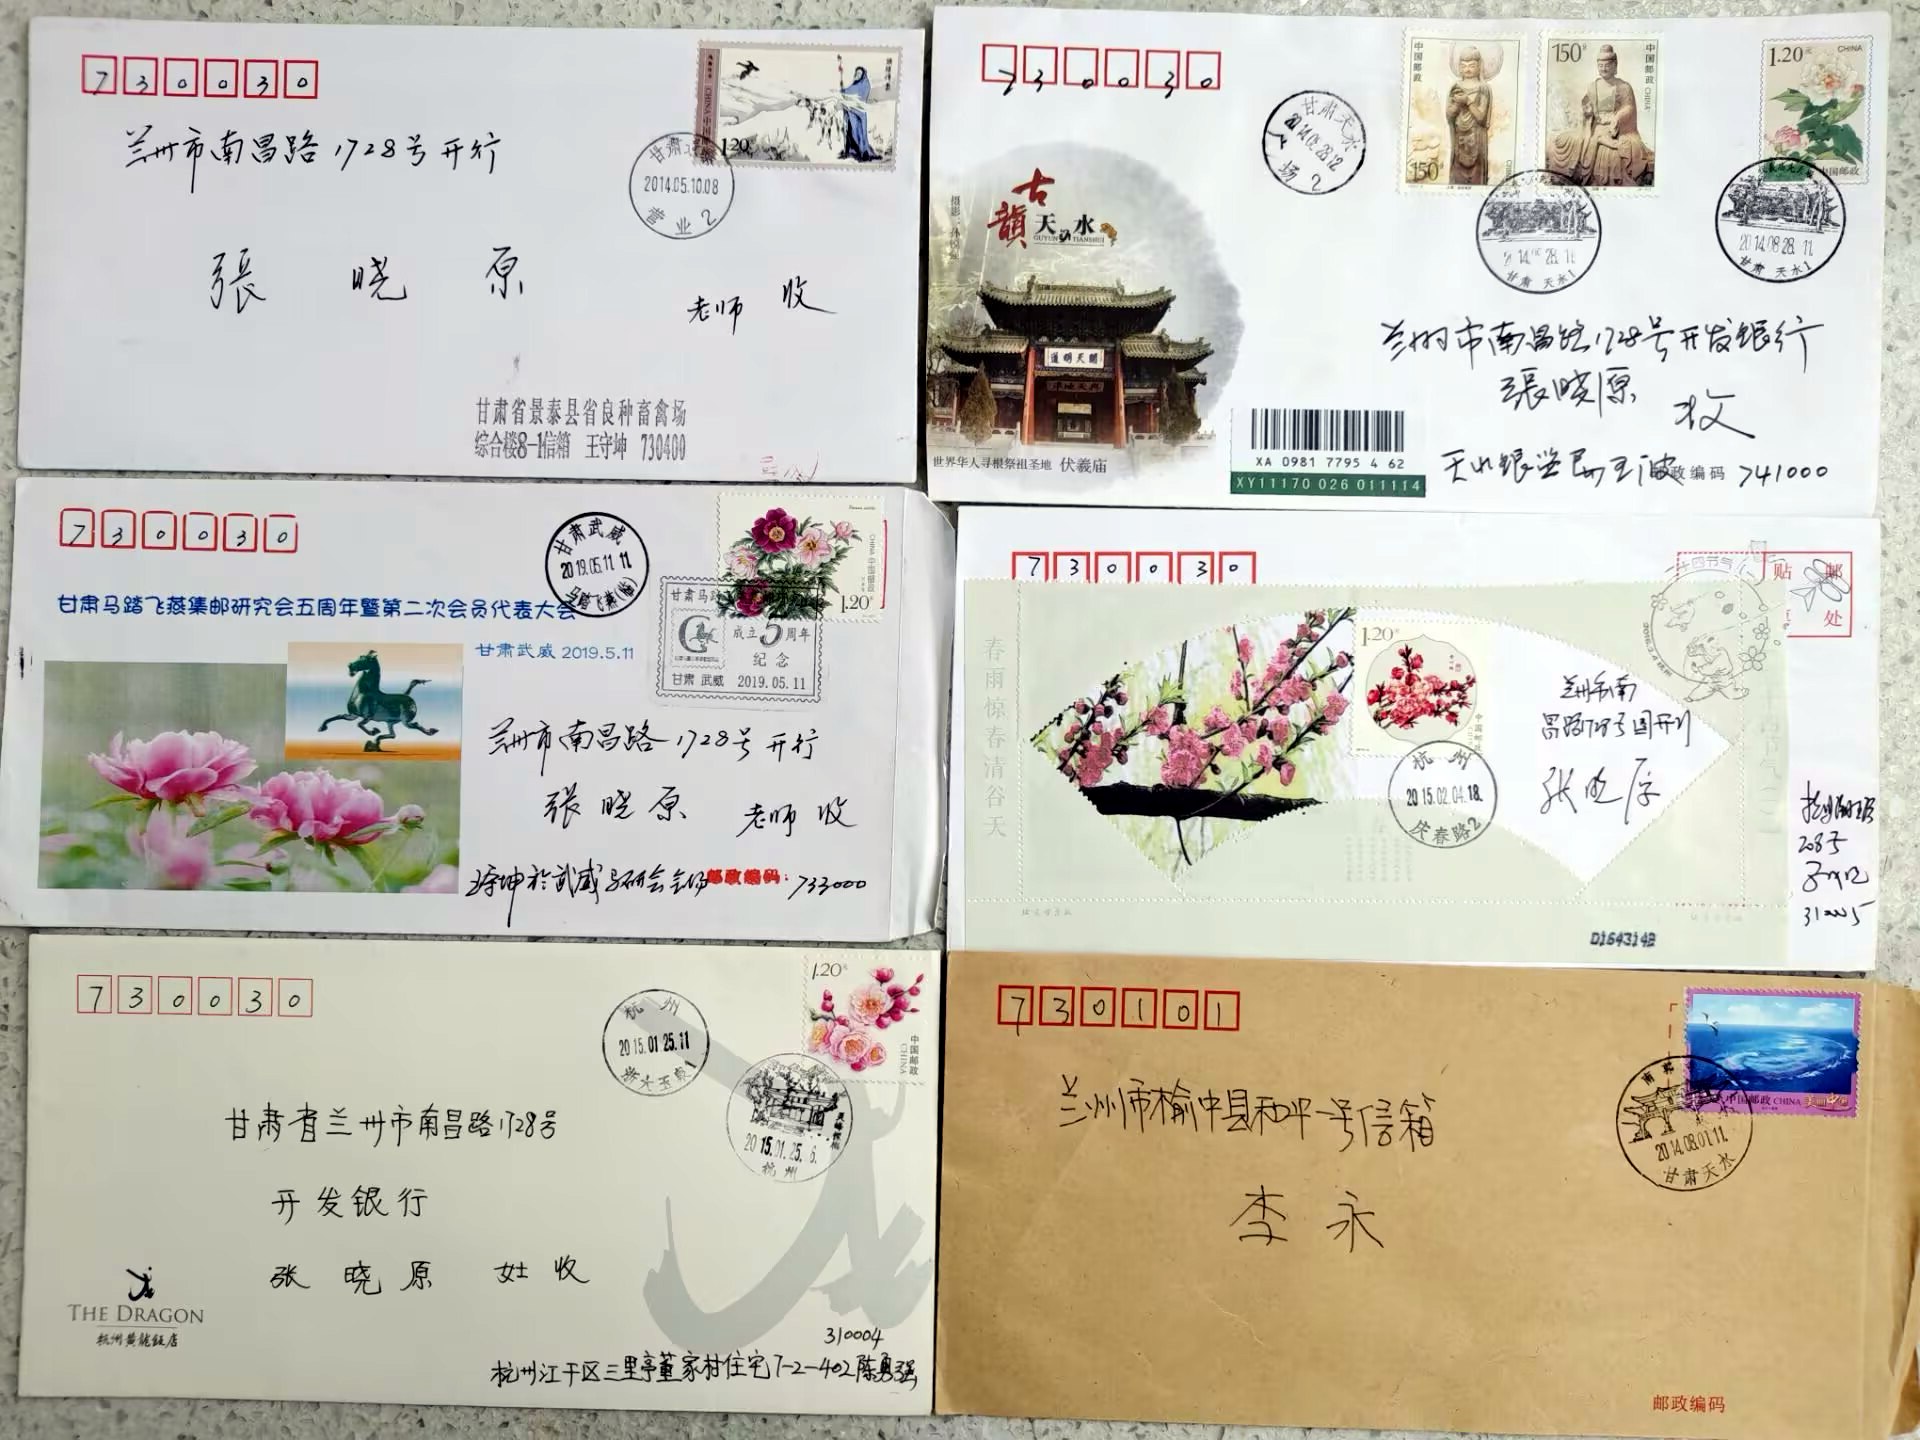 730030
兰州市南昌路1728号开行
張 晓 原
老师 收
1.20元
2014.05.10.08
营业2
甘肃省景泰县省良种畜禽场
综合楼8-1信箱 王守坤 730400
730030
甘肃天水
2014.08.28.12
广场2
中国邮政
150分
150分
中国邮政 CHINA
1.20元
CHINA
中国邮政
古韻
天水
GUYUN TIANSHUI
開天明道
2014.08.28.11
甘肃 天水1
2014.08.28.11
甘肃 天水1
兰州市南昌路1728号开发银行
張晓原 收
XA 0981 7795 4 62
XY11170 026 011114
世界华人寻根祭祖圣地 伏羲庙
邮政编码 741000
730030
甘肃武威
2019.05.11 11
马踏飞燕(临)
CHINA 中国邮政
1.20元
甘肃马踏飞燕集邮研究会五周年暨第二次会员代表大会
甘肃武威 2019.5.11
成立5周年
纪念
甘肃 武威 2019.05.11
兰州市南昌路1728号开行
張晓原 老师 收
邮政编码: 733000
730030
贴邮票处
春雨惊春清谷天
1.20元
中国邮政
杭州
2015.02.04.18
庆春路2
兰州市南
昌路1728号国开行
张晓原
208号
310005
D1643142
730030
1.20元
中国邮政
CHINA
杭州
2015.01.25.11
浙大玉泉1
2015.01.25.6.
杭州
甘肃省兰州市南昌路1728号
开发银行
张 晓 原 女士 收
THE DRAGON
杭州黄龍飯店
310004
杭州江干区三里亭董家村住宅7-2-402陈勇强
730101
中国邮政 CHINA
2014.08.01.11.
甘肃天水
兰州市榆中县和平一号信箱
李 永
邮政编码